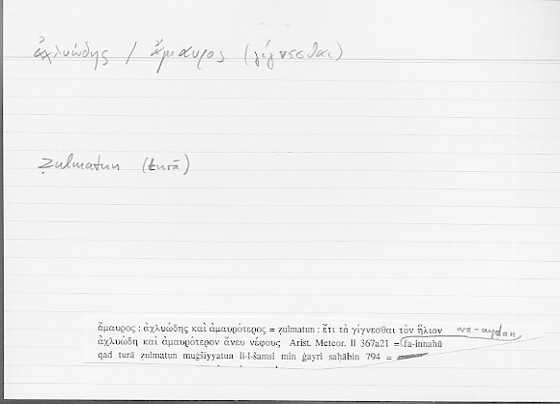 ἀχλυώδης / ἄμαυρος (γίγνεσθαι)
ẓulmatun (turā)
ἄμαυρος : ἀχλυώδης καὶ ἀμαυρότερος = ẓulmatun : ἔτι τὸ γίγνεσθαι τὸν ἥλιον wa-ayḍan
ἀχλυώδη καὶ ἀμαυρότερον ἄνευ νέφους Arist. Meteor. II 367a21 = (fa-innahū
qad turā ẓulmatun muġšiyyatun li-l-šamsi min ġayri saḥābin 794 =